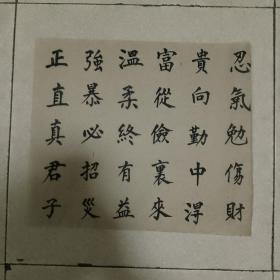 忍氣勉傷財
貴向勤中淂
富從儉裏來
溫柔終有益
強暴必招災
正直真君子